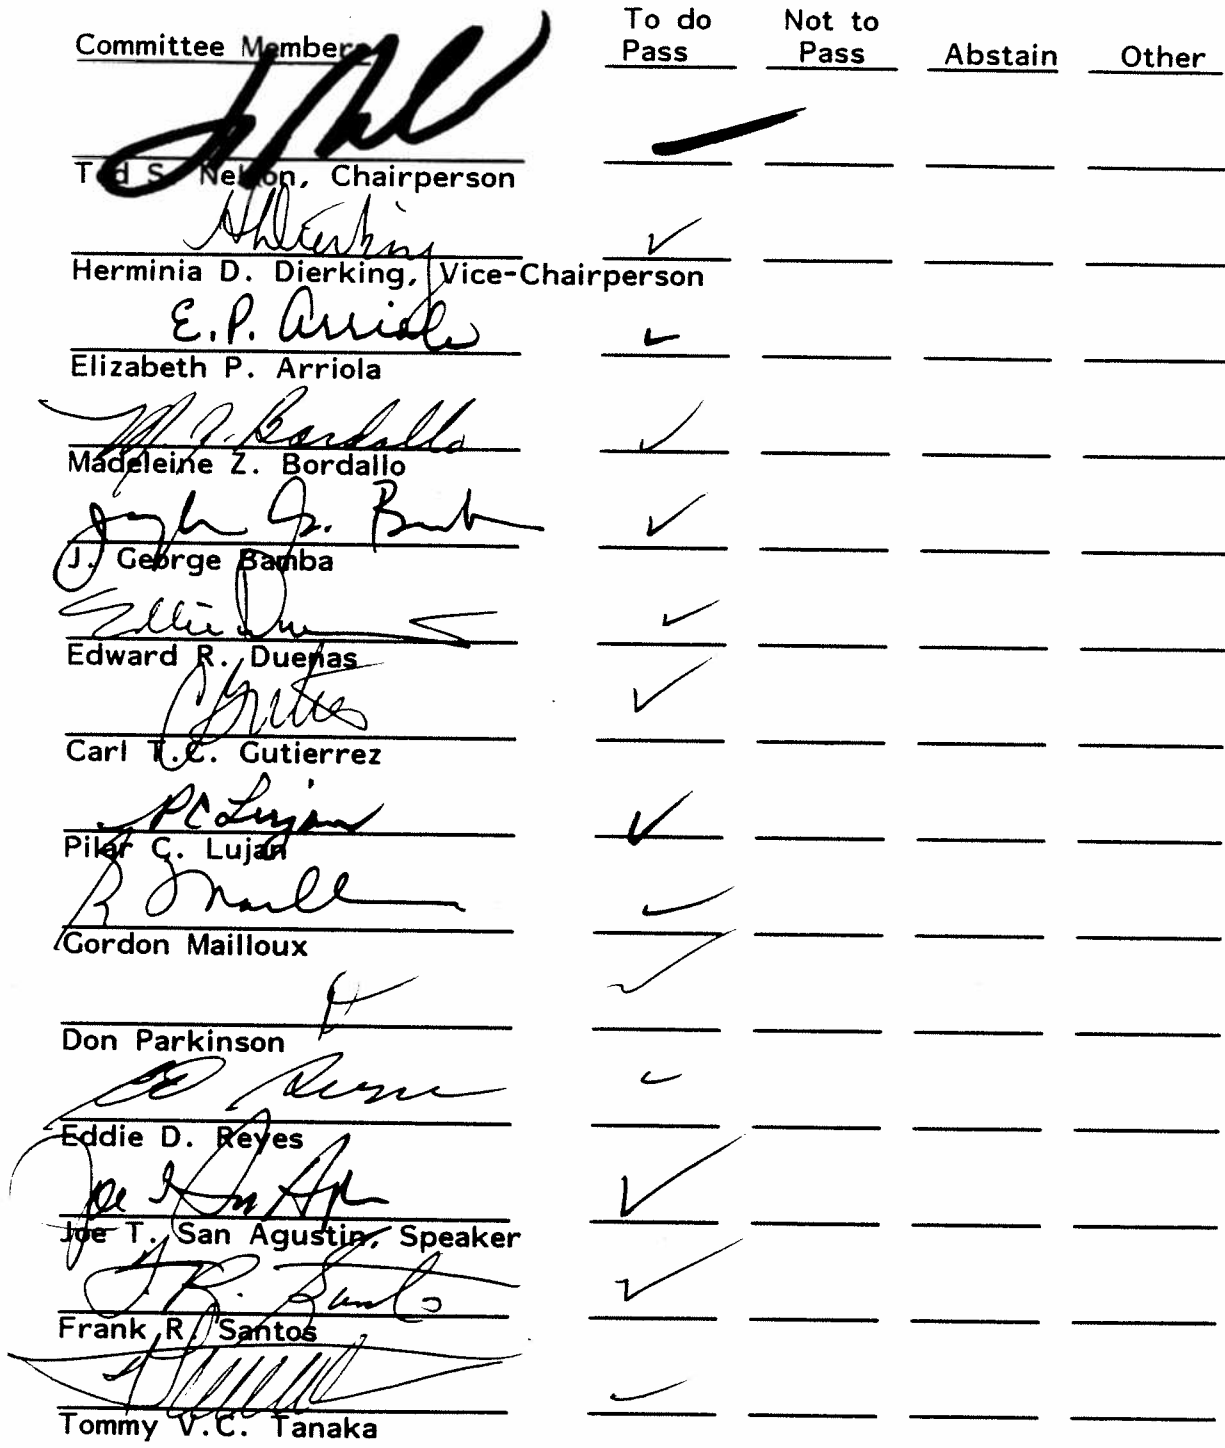 To do Not to
Committee Members Pass Pass Abstain Other
Ted S. Nelson, Chairperson
HDierking ✓
Herminia D. Dierking, Vice-Chairperson
E.P. Arriola ✓
Elizabeth P. Arriola
M. Z. Bordallo ✓
Madeleine Z. Bordallo
✓
J. George Bamba
✓
Edward R. Duenas
✓
Carl T.C. Gutierrez
PC Lujan ✓
Pilar C. Lujan
✓
Gordon Mailloux
✓
Don Parkinson
✓
Eddie D. Reyes
Joe ✓
Joe T. San Agustin, Speaker
✓
Frank R. Santos
✓
Tommy V.C. Tanaka